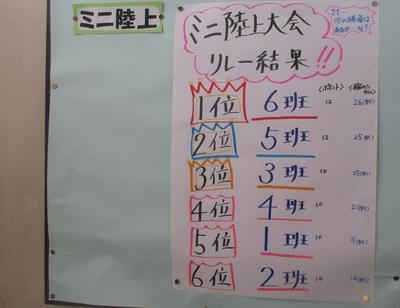 ミニ陸上
ミニ陸上大会
リレー結果!!
さて…
次の勝者は
<ポイント>
1位 6班 12 26(秒)
2位 5班 12 25(秒)
3位 3班 10 25(秒)
4位 4班 10 21(秒)
5位 1班 10 15(秒)
6位 2班 10 14(秒)